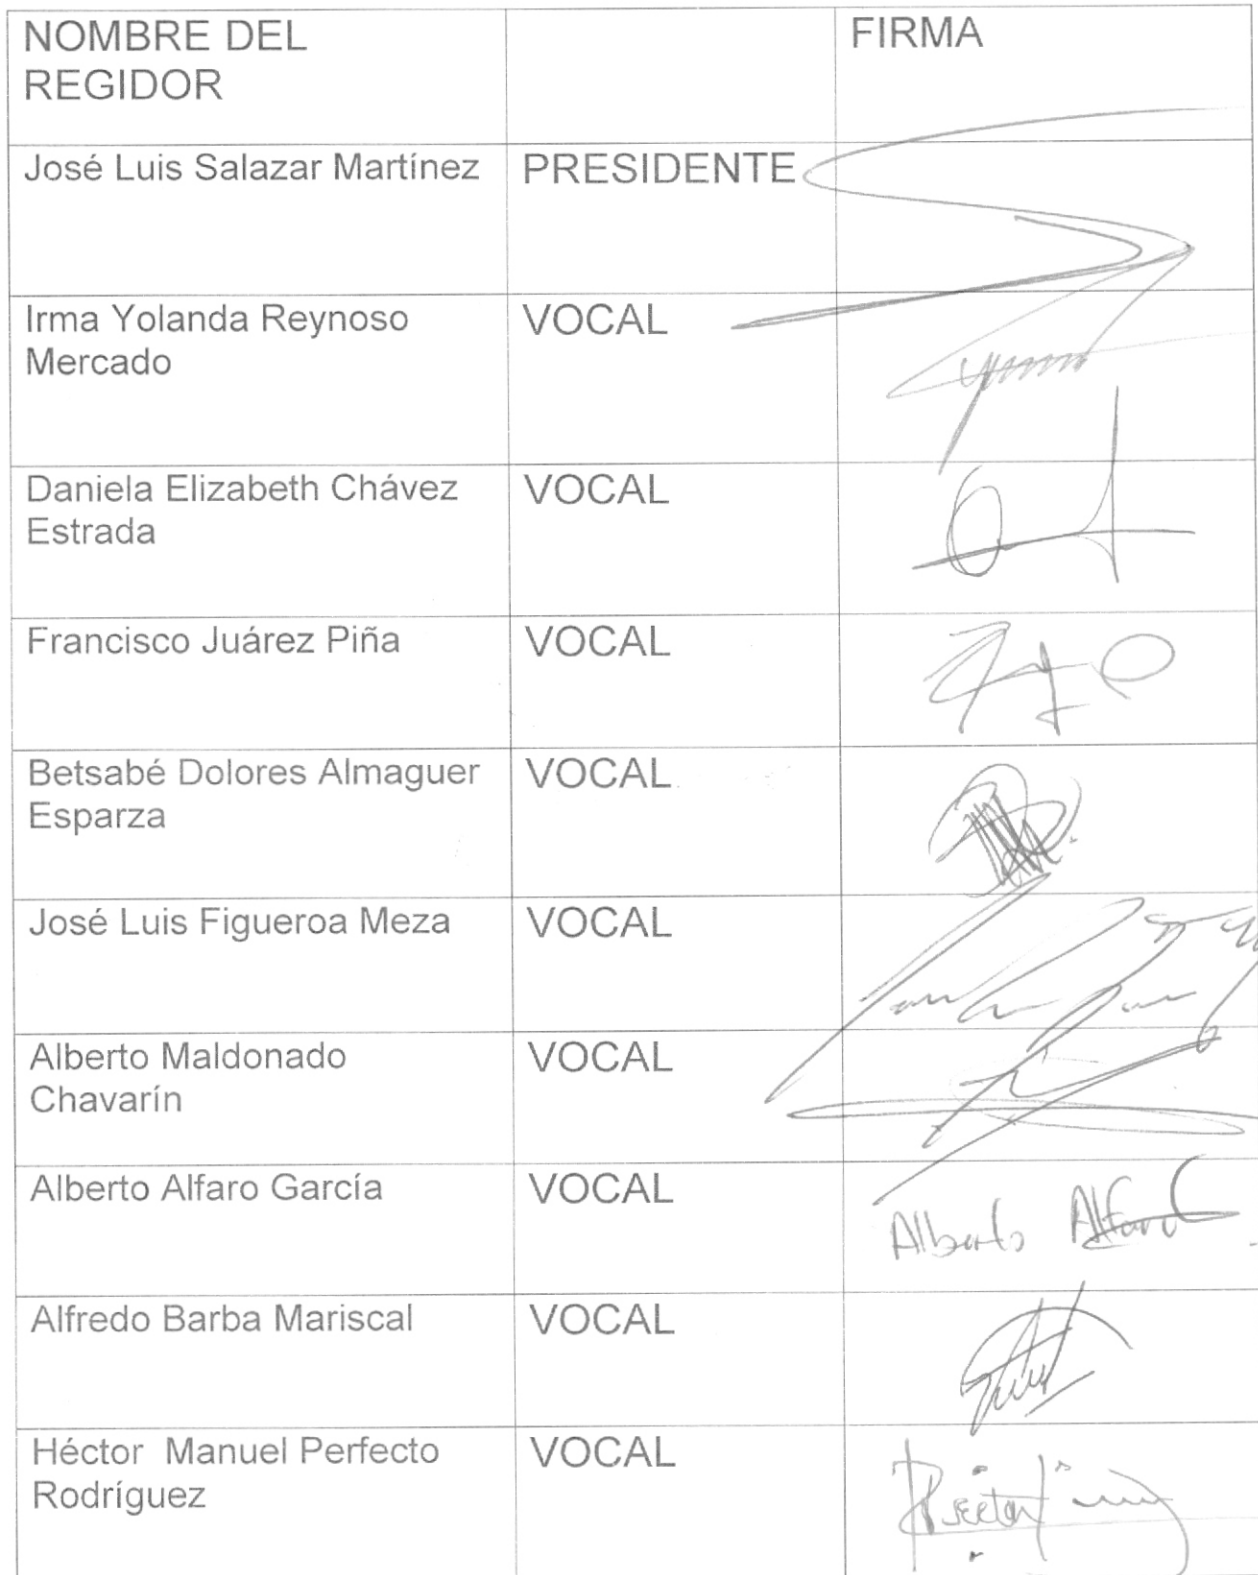 NOMBRE DEL
REGIDOR
FIRMA
José Luis Salazar Martínez
PRESIDENTE
Irma Yolanda Reynoso
Mercado
VOCAL
Daniela Elizabeth Chávez
Estrada
VOCAL
Francisco Juárez Piña
VOCAL
Betsabé Dolores Almaguer
Esparza
VOCAL
José Luis Figueroa Meza
VOCAL
Alberto Maldonado
Chavarín
VOCAL
Alberto Alfaro García
VOCAL
Alberto Alfaro
Alfredo Barba Mariscal
VOCAL
Héctor Manuel Perfecto
Rodríguez
VOCAL